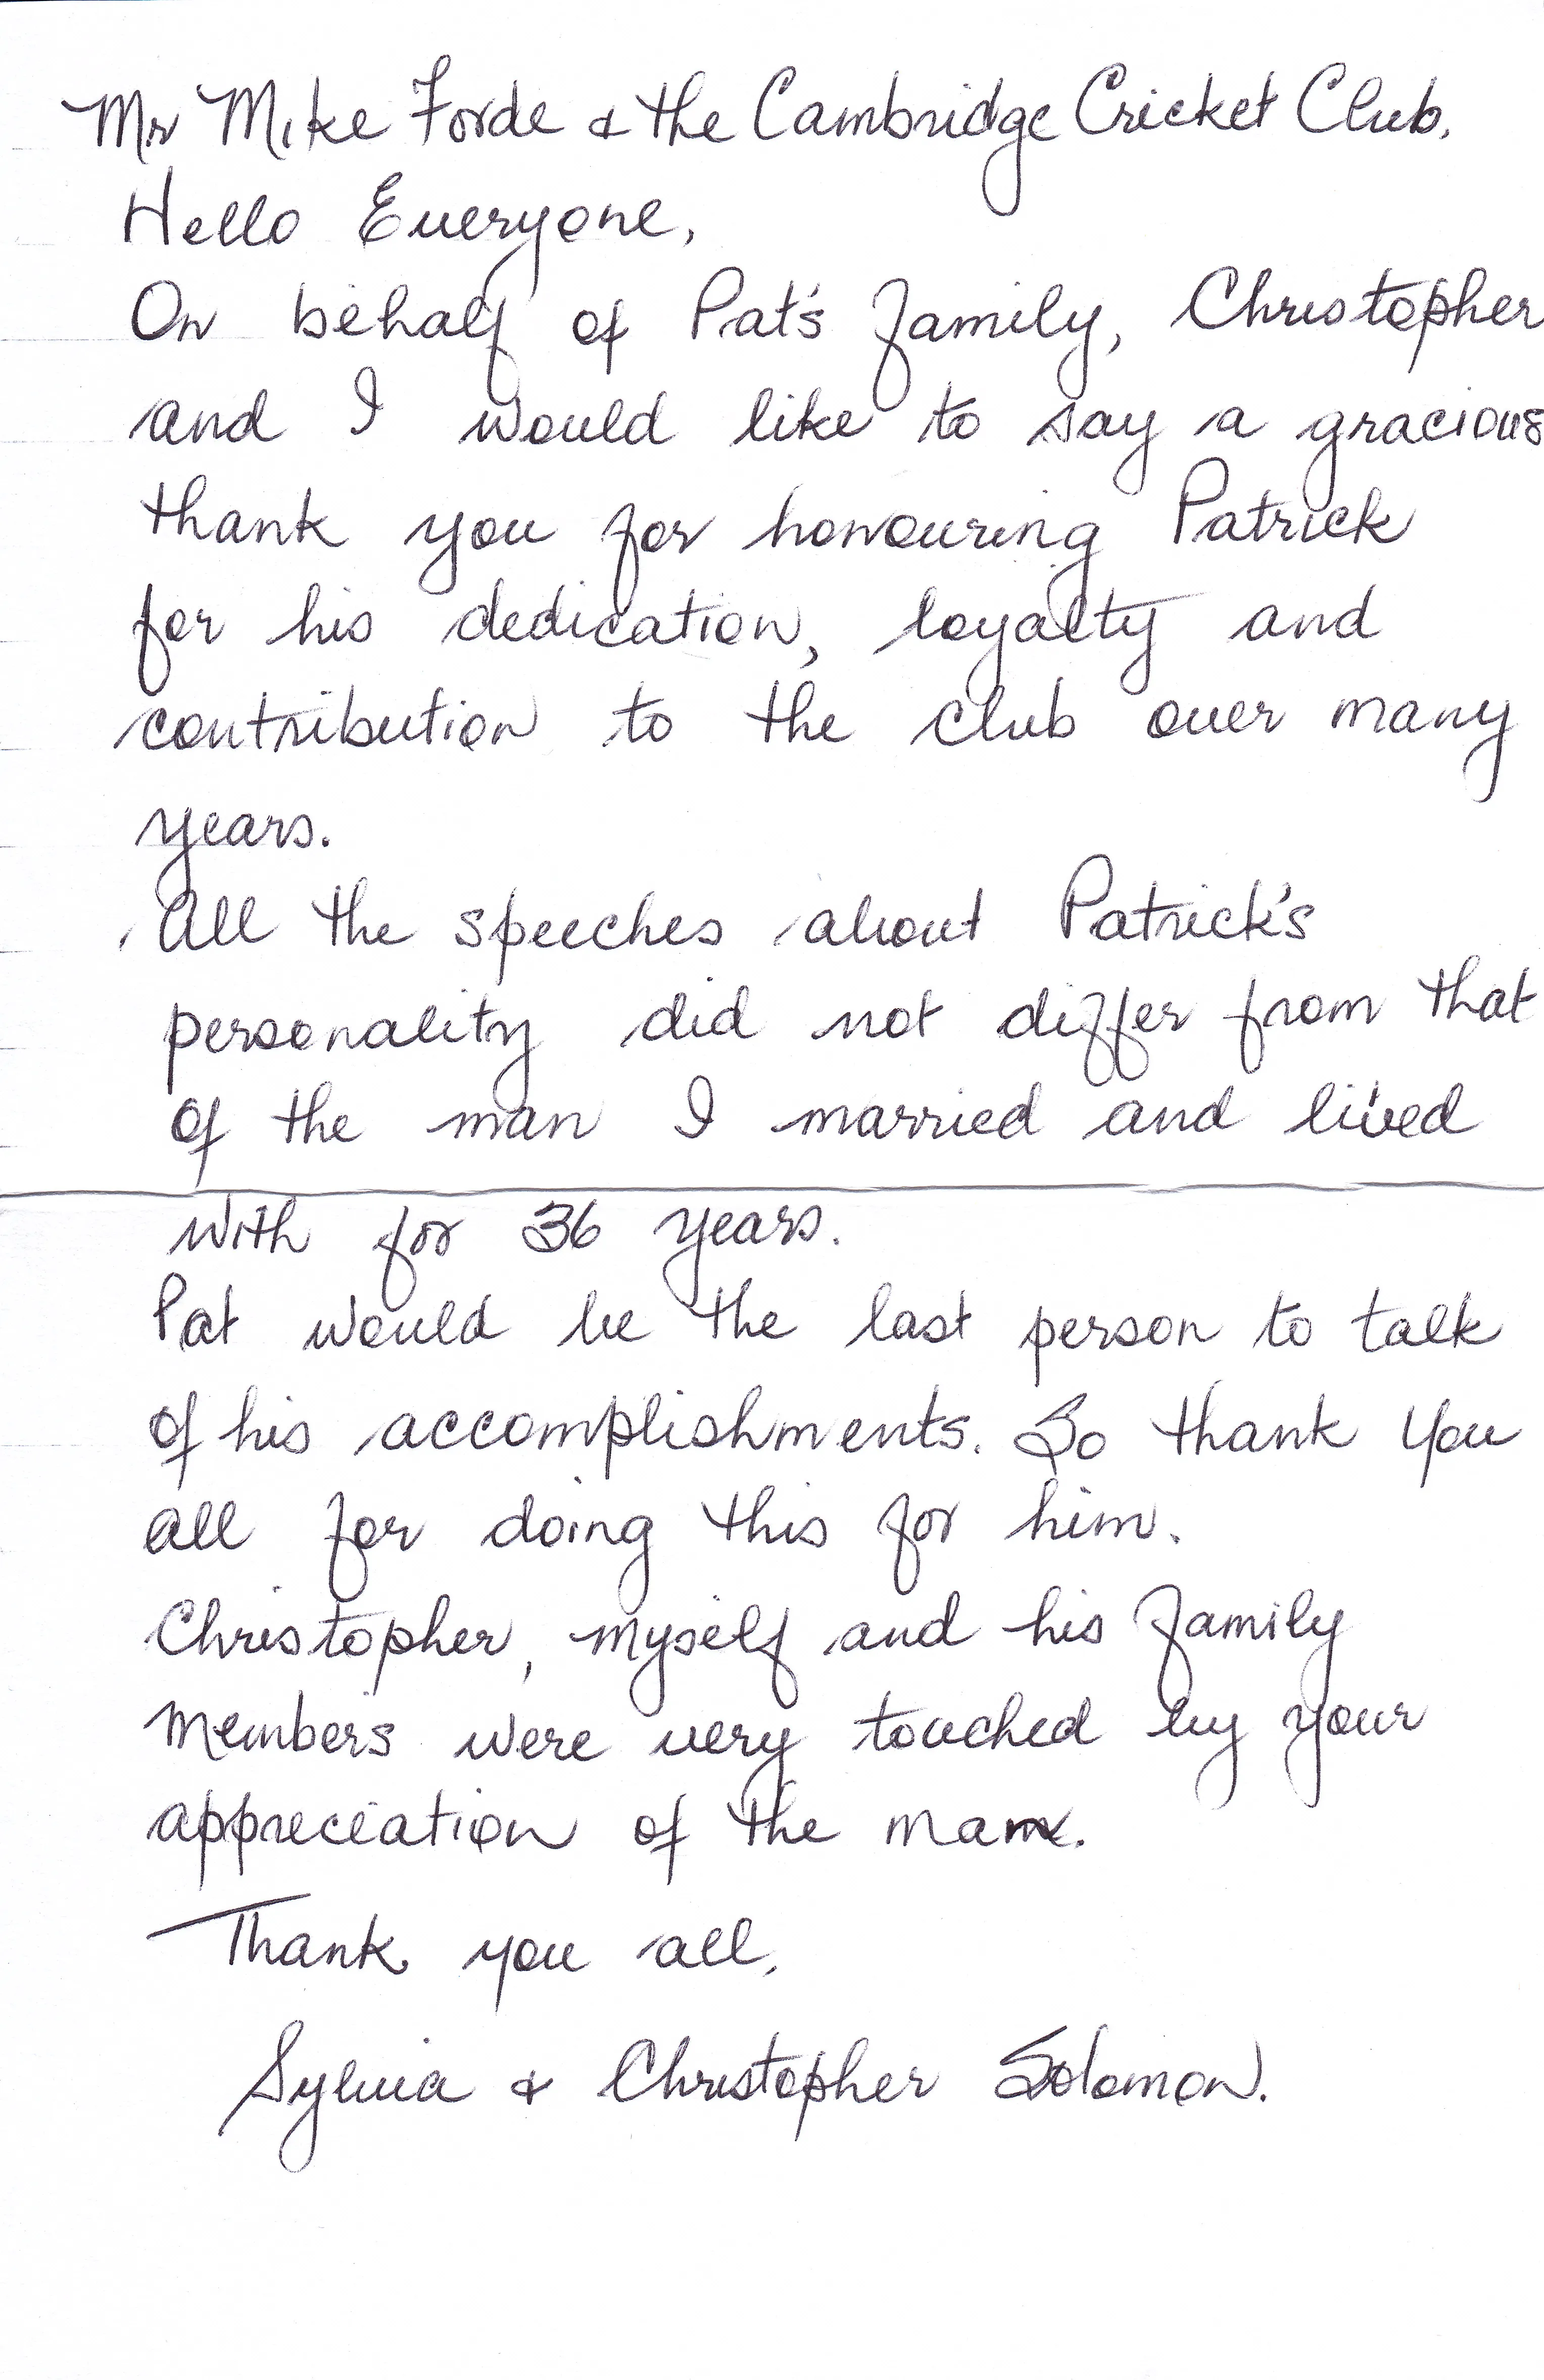 Mr Mike Forde & the Cambridge Cricket Club.
Hello Everyone,
On behalf of Pat's family, Christopher
and I would like to say a gracious
thank you for honouring Patrick
for his dedication, loyalty and
contribution to the club over many
years.
All the speeches about Patrick's
personality did not differ from that
of the man I married and lived
with for 36 years.
Pat would be the last person to talk
of his accomplishments. So thank you
all for doing this for him.
Christopher, myself and his family
members were very touched by your
appreciation of the man.
Thank you all,
Sylvia & Christopher Solomon.